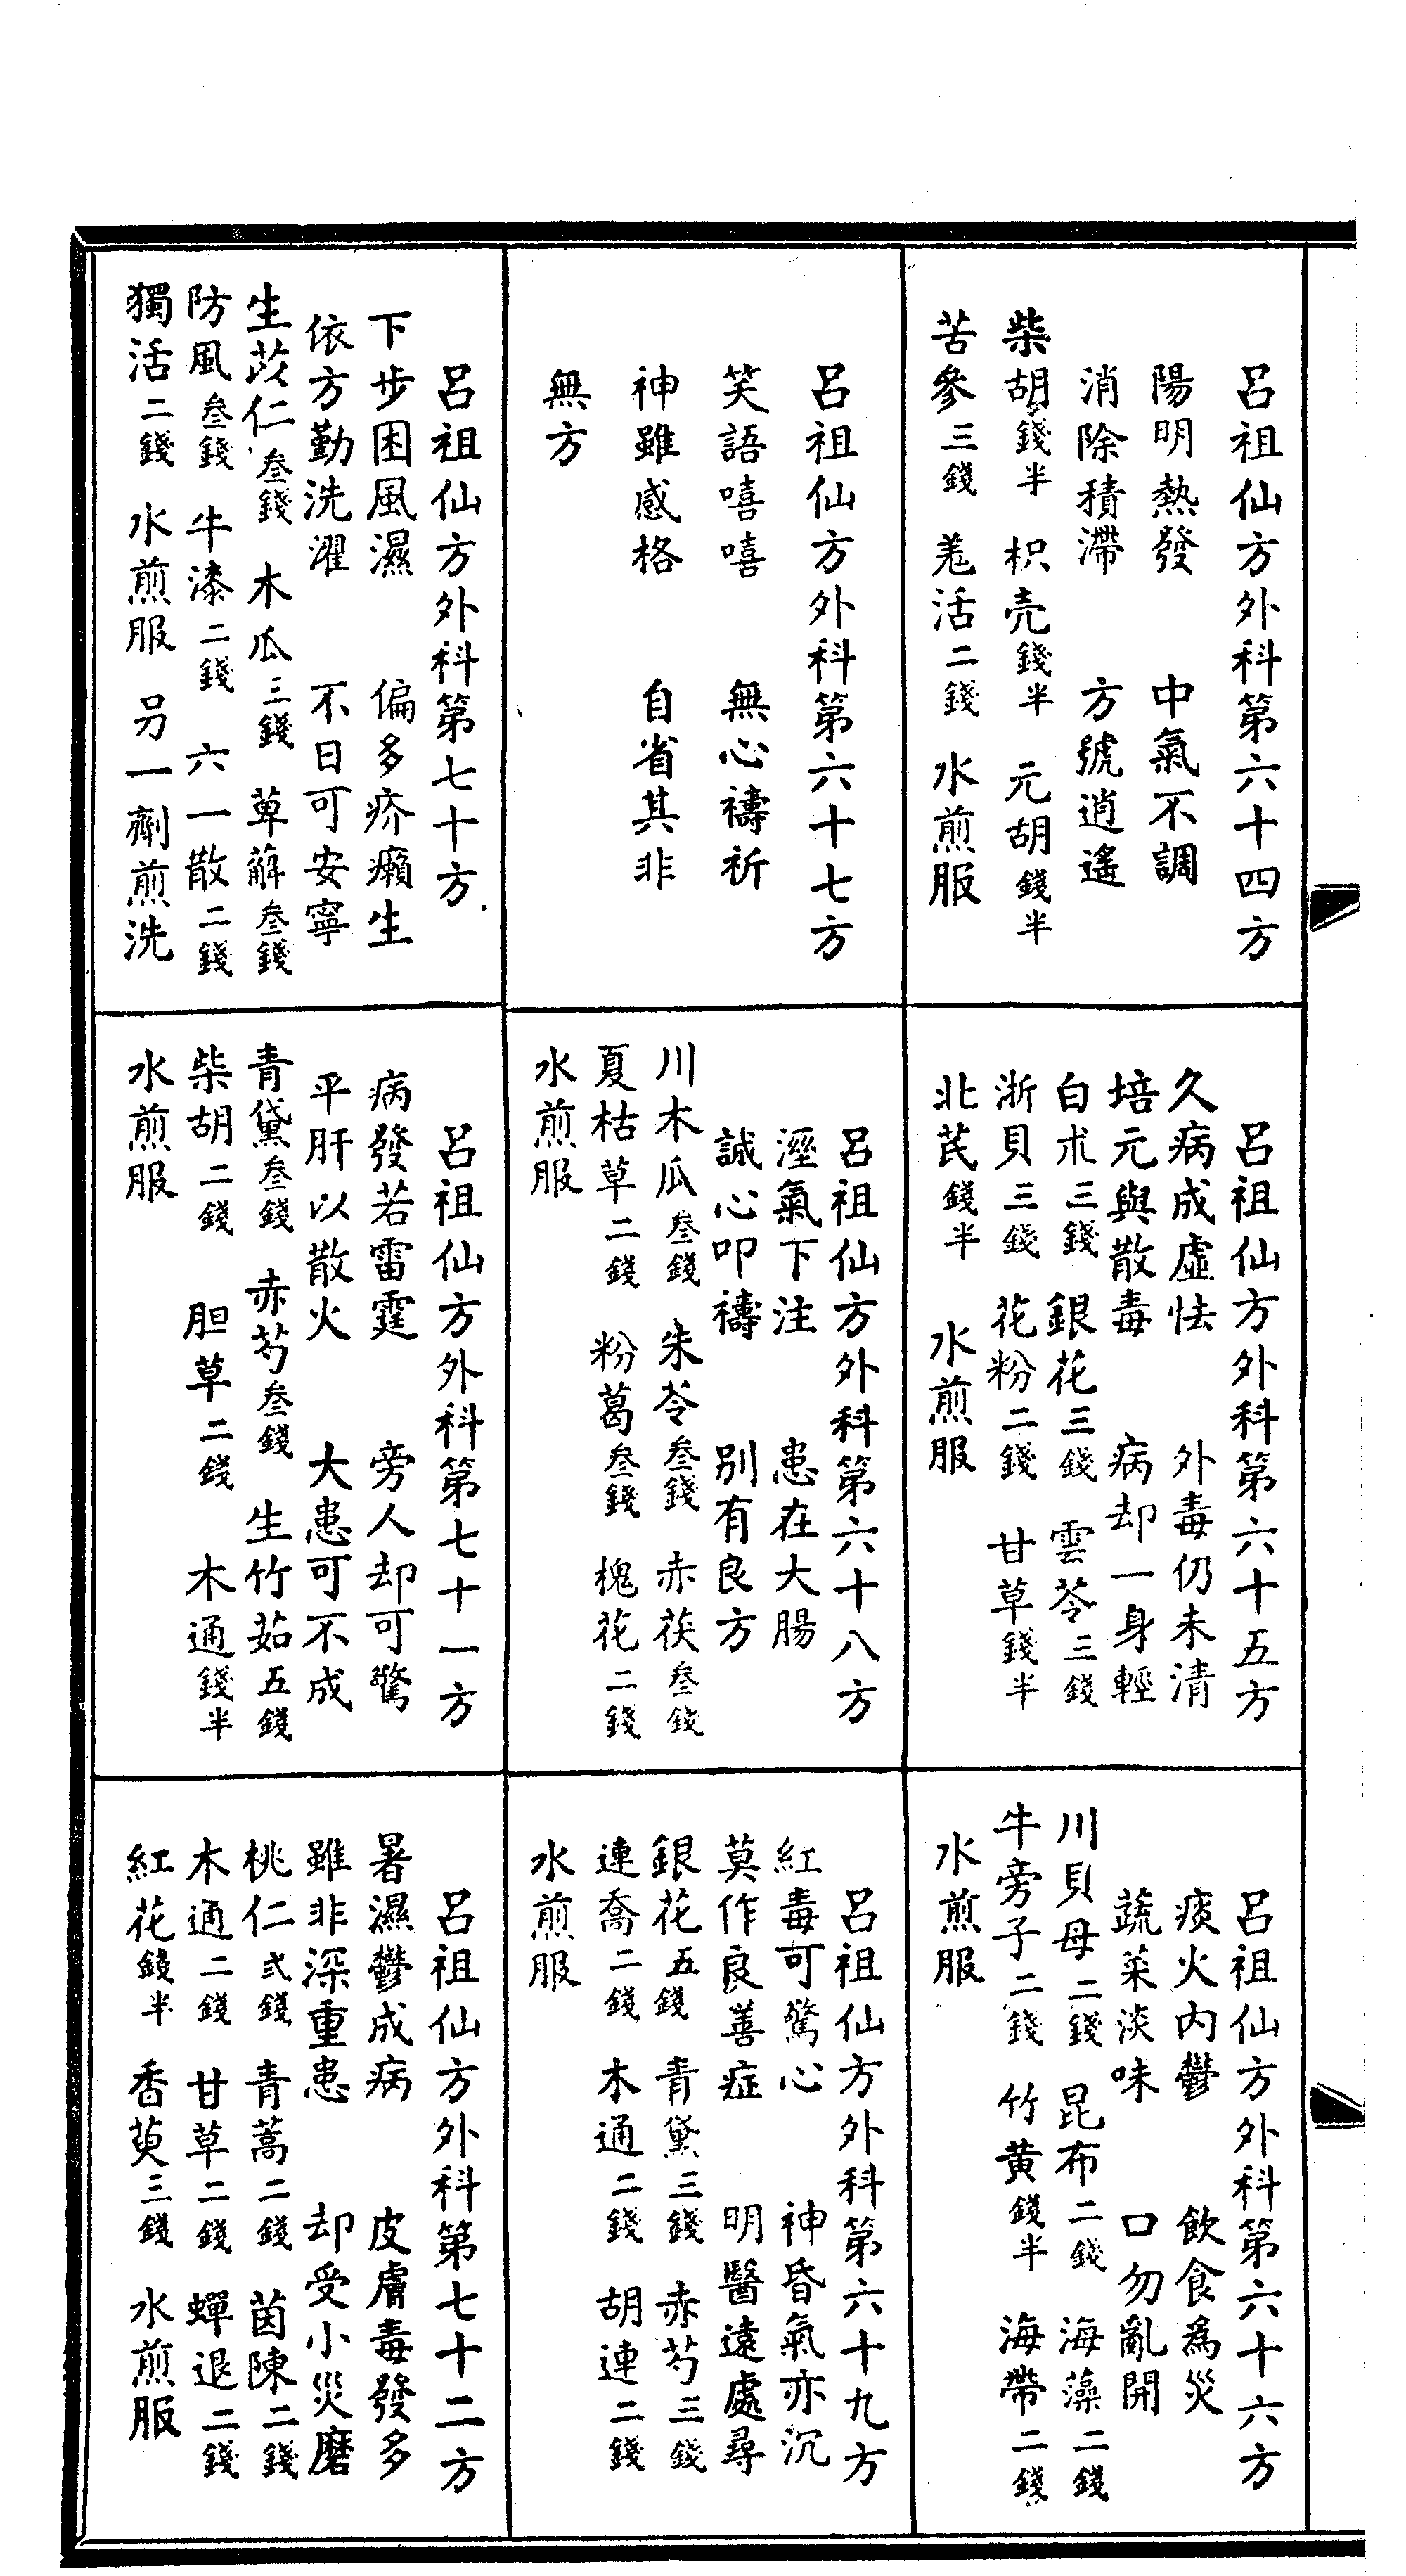 呂祖仙方外科第六十四方
陽明熱發　中氣不調
消除積滯　方號逍遙
柴胡錢半　枳壳錢半　元胡錢半
苦參三錢　羗活二錢　水煎服
呂祖仙方外科第六十五方
久病成虛怯　外毒仍未清
培元與散毒　病却一身輕
白朮三錢　銀花三錢　雲苓三錢
浙貝三錢　花粉二錢　甘草錢半
北芪錢半　水煎服
呂祖仙方外科第六十六方
痰火內鬱　飲食為災
蔬菜淡味　口勿亂開
川貝母二錢　昆布二錢　海藻二錢
牛旁子二錢　竹黄錢半　海帶二錢
水煎服
呂祖仙方外科第六十七方
笑語嘻嘻　無心禱祈
神雖感格　自省其非
無方
呂祖仙方外科第六十八方
溼氣下注　患在大腸
誠心叩禱　別有良方
川木瓜叁錢　朱苓叁錢　赤茯叁錢
夏枯草二錢　粉葛叁錢　槐花二錢
水煎服
呂祖仙方外科第六十九方
紅毒可驚心　神昏氣亦沉
莫作良善症　明醫遠處尋
銀花五錢　青黛三錢　赤芍三錢
連喬二錢　木通二錢　胡連二錢
水煎服
呂祖仙方外科第七十方
下步困風濕　偏多疥癩生
依方勤洗濯　不日可安寧
生苡仁叁錢　木瓜三錢　萆薢叁錢
防風叁錢　牛漆二錢　六一散二錢
獨活二錢　水煎服　另一劑煎洗
呂祖仙方外科第七十一方
病發若雷霆　旁人却可驚
平肝以散火　大患可不成
青黛叁錢　赤芍叁錢　生竹茹五錢
柴胡二錢　胆草二錢　木通錢半
水煎服
呂祖仙方外科第七十二方
暑濕鬱成病　皮膚毒發多
雖非深重患　却受小災磨
桃仁弍錢　青蒿二錢　茵陳二錢
木通二錢　甘草二錢　蟬退二錢
紅花錢半　香萸三錢　水煎服